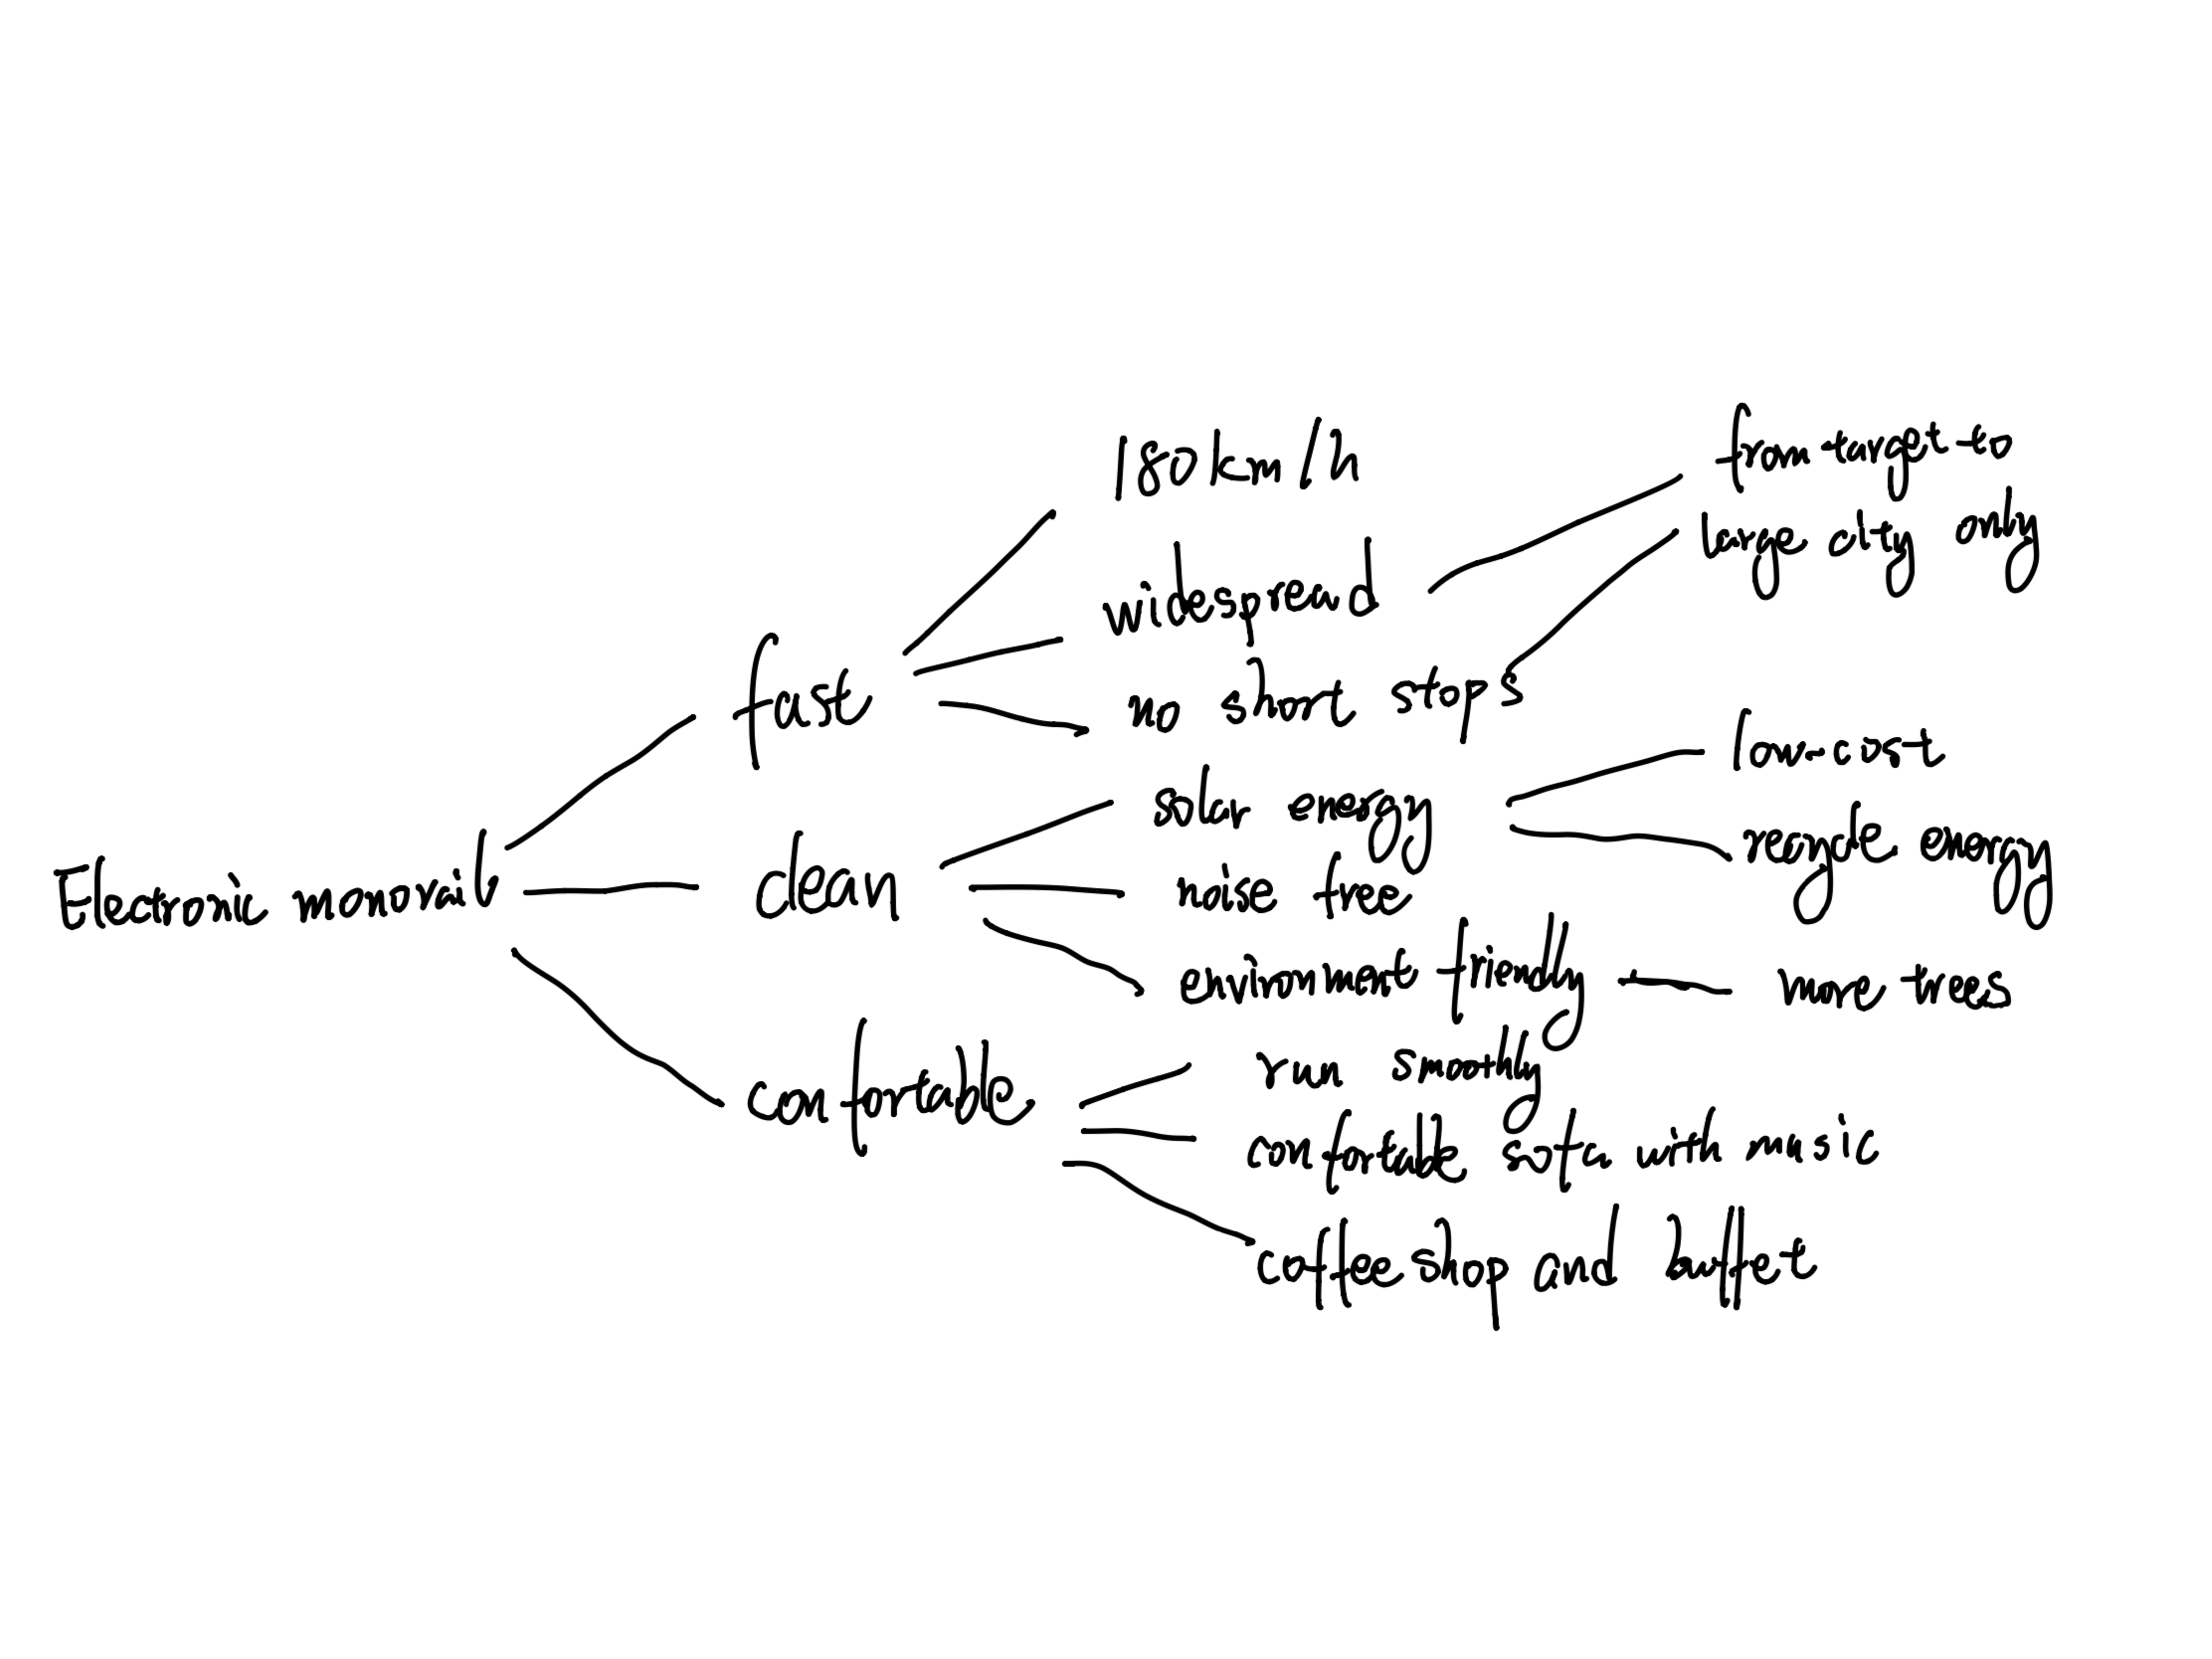 Electronic monorail
fast
180km/h
widespread
no short stops
from target to
large city only
clean
solar energy
low-cost
recycle energy
noise free
environment friendly
more trees
confortable
run smoothly
confortable sofa with music
coffee shop and buffet